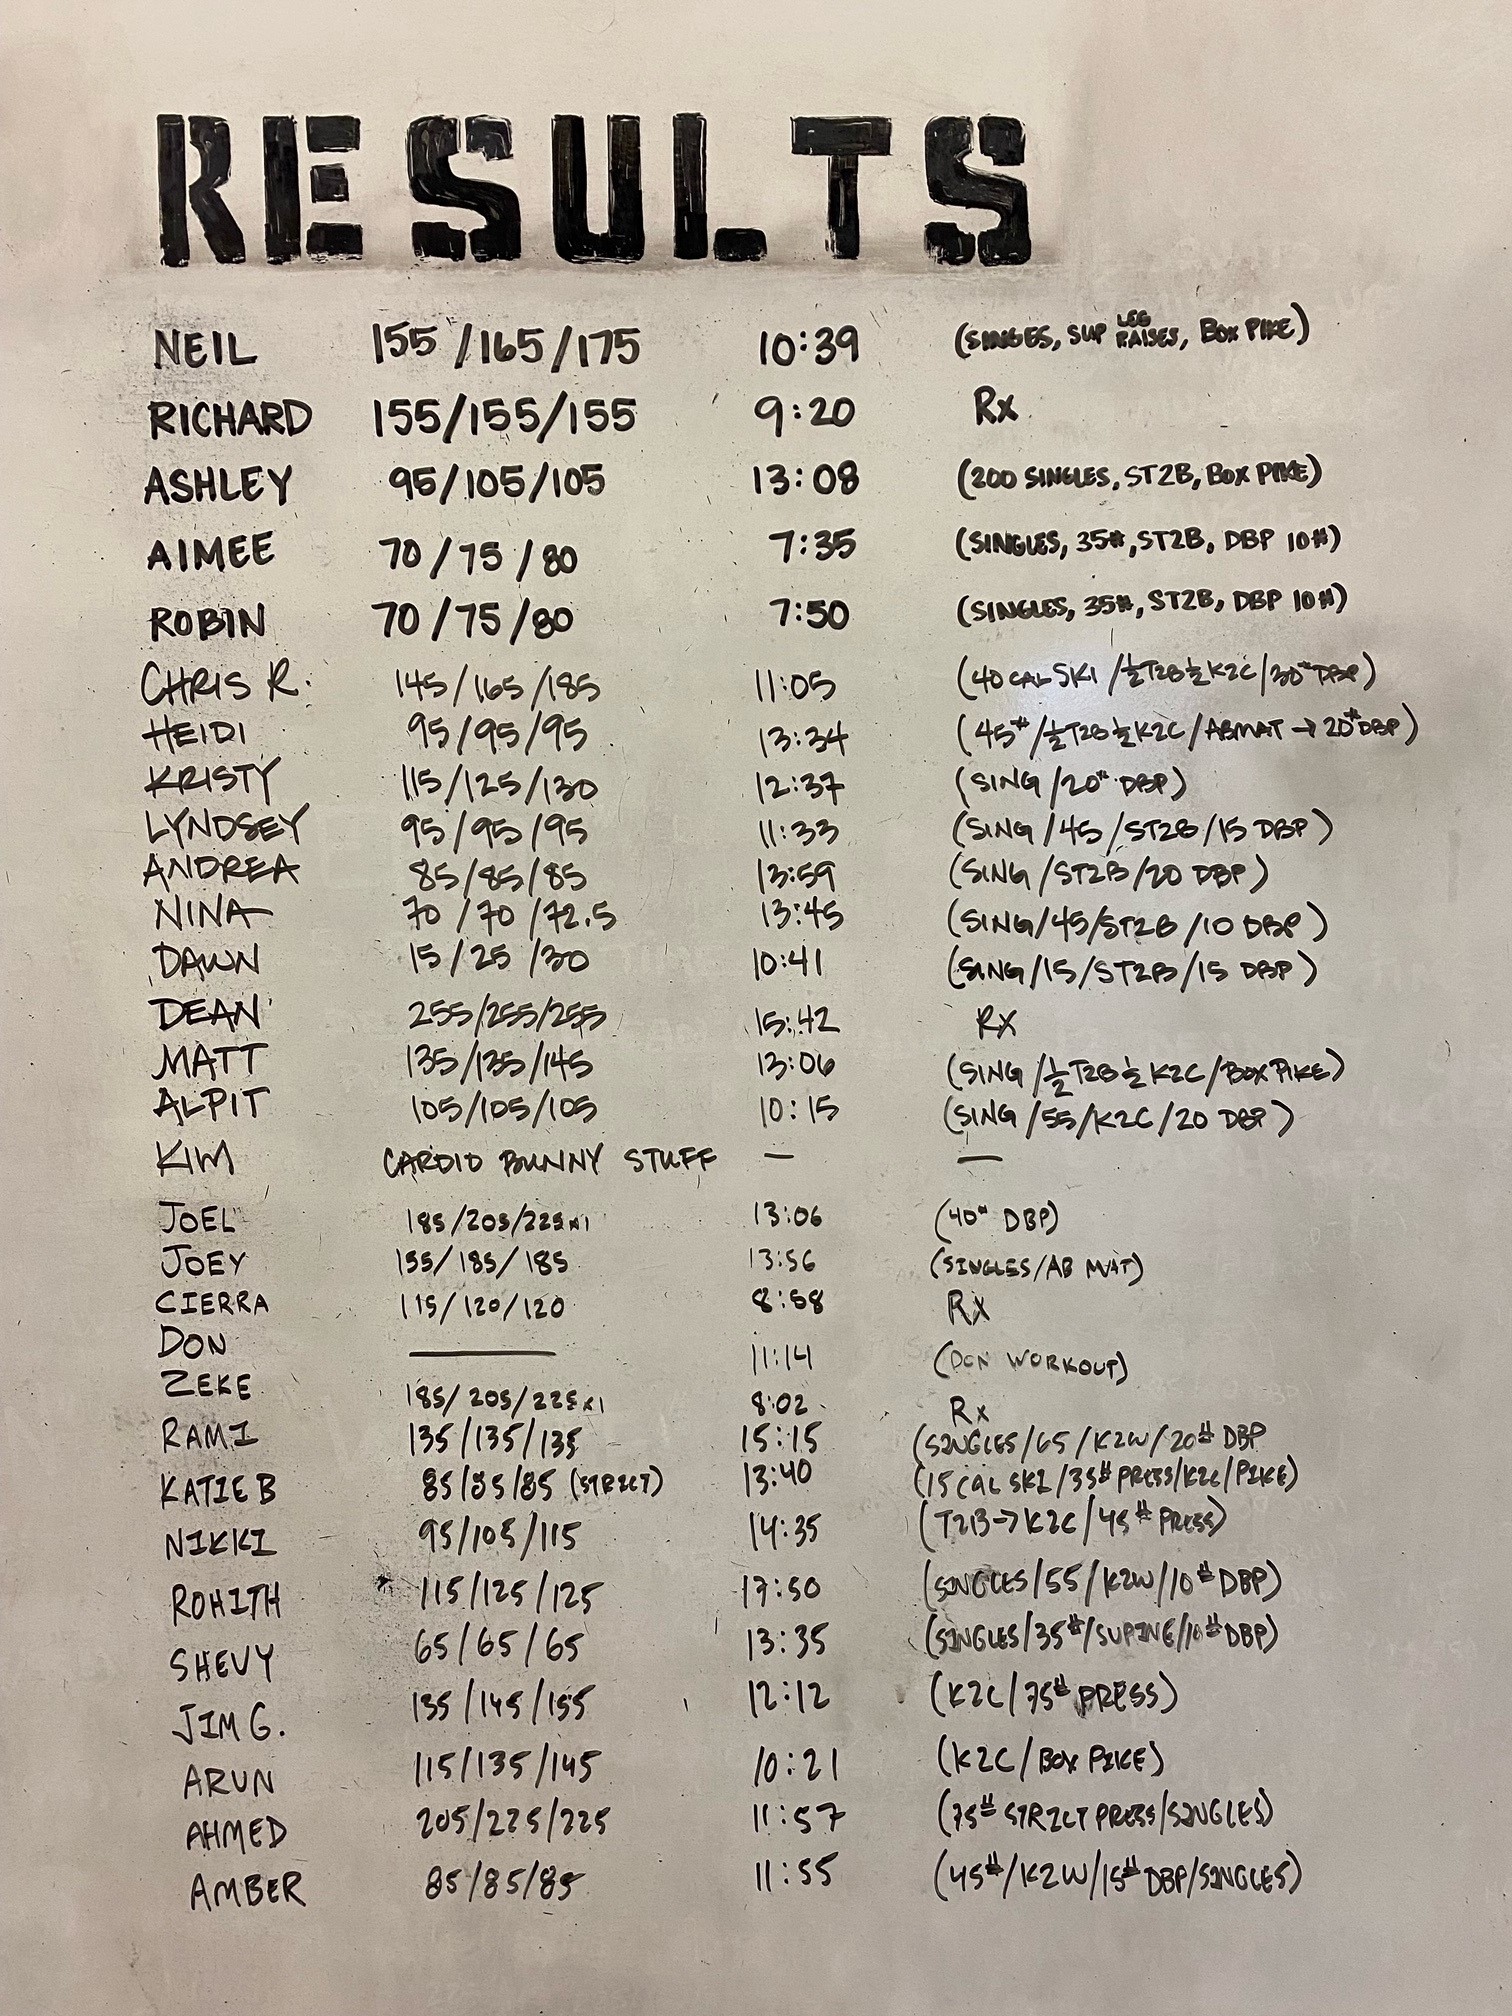 RESULTS
NEIL 155/165/175 10:39 (SINGES, SUP LEG RAISES, BOX PIKE)
RICHARD 155/155/155 9:20 Rx
ASHLEY 95/105/105 13:08 (200 SINGLES, ST2B, BOX PIKE)
AIMEE 70/75/80 7:35 (SINGLES, 35#, ST2B, DBP 10#)
ROBIN 70/75/80 7:50 (SINGLES, 35#, ST2B, DBP 10#)
CHRIS R. 145/165/185 11:05 (40 CAL SKI/½T2B ½K2C/30# DBP)
HEIDI 95/95/95 13:34 (45#/½T2B ½K2C/ABMAT → 20# DBP)
KRISTY 115/125/130 12:37 (SING/20# DBP)
LYNDSEY 95/95/95 11:33 (SING/45/ST2B/15 DBP)
ANDREA 85/85/85 13:59 (SING/ST2B/20 DBP)
NINA 70/70/72.5 13:45 (SING/45/ST2B/10 DBP)
DAWN 15/25/30 10:41 (SING/15/ST2B/15 DBP)
DEAN 255/255/255 15:42 Rx
MATT 135/135/145 13:06 (SING/½T2B ½K2C/BOX PIKE)
ALPIT 105/105/105 10:15 (SING/55/K2C/20 DBP)
KIM CARDIO BUNNY STUFF — —
JOEL 185/205/225x1 13:06 (40# DBP)
JOEY 155/185/185 13:56 (SINGLES/AB MAT)
CIERRA 115/120/120 8:58 Rx
DON — 11:14 (DON WORKOUT)
ZEKE 185/205/225x1 8:02 Rx
RAMI 135/135/135 15:15 (SINGLES/65/K2W/20# DBP
KATIE B 85/85/85 (STRICT) 13:40 (15 CAL SKI/35# PRESS/K2C/PIKE)
NIKKI 95/105/115 14:35 (T2B→K2C/45# PRESS)
ROHITH 115/125/125 17:50 (SINGLES/55/K2W/10# DBP)
SHEVY 65/65/65 13:35 (SINGLES/35#/SUPINE/10# DBP)
JIM G. 135/145/155 12:12 (K2C/75# PRESS)
ARUN 115/135/145 10:21 (K2C/BOX PIKE)
AHMED 205/225/225 11:57 (75# STRICT PRESS/SINGLES)
AMBER 85/85/85 11:55 (45#/K2W/15# DBP/SINGLES)